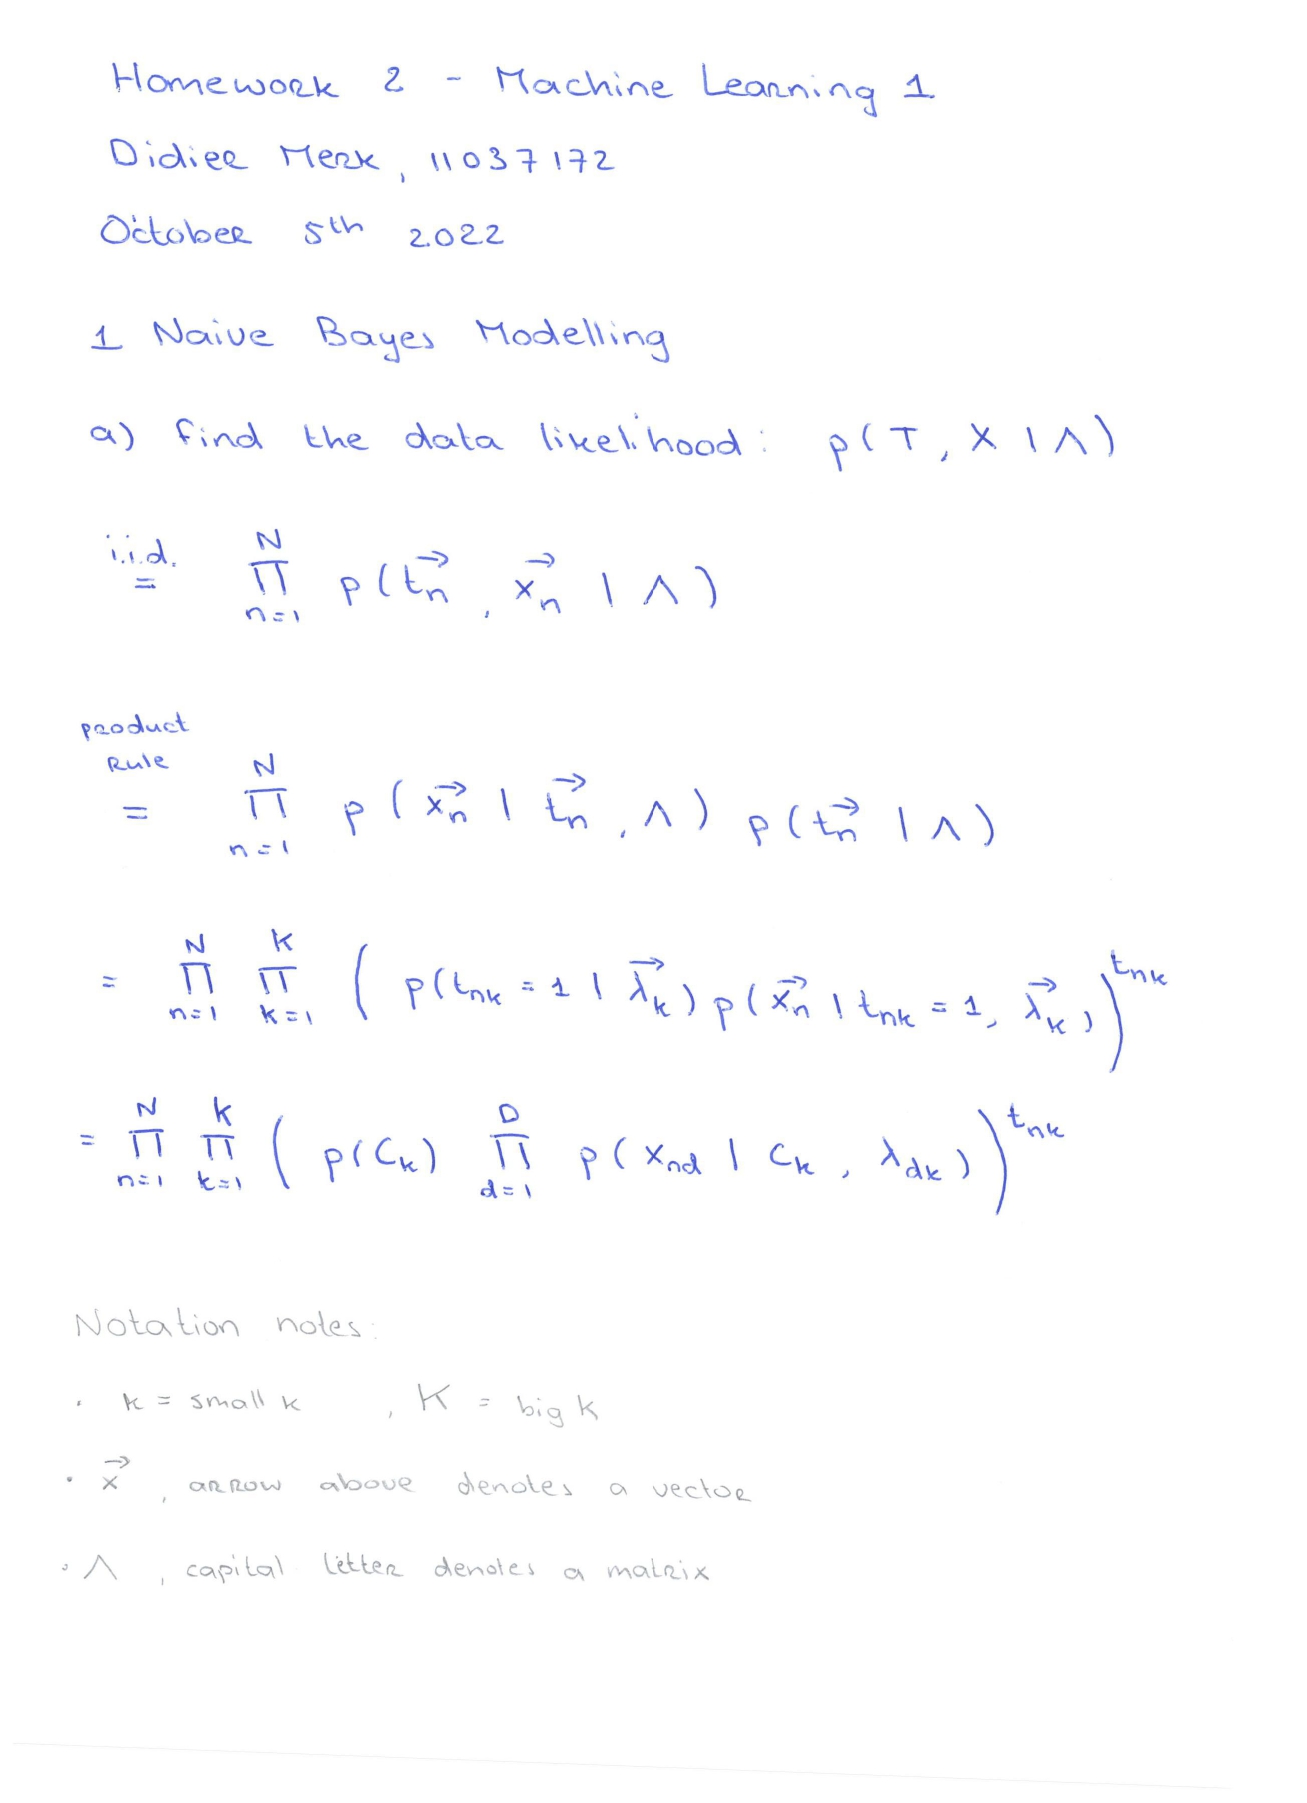 Homework 2 - Machine Learning 1
Didier Merk, 11037172
October 5th 2022
1 Naive Bayes Modelling
a) find the data likelihood: p(T, X | Λ)
i.i.d. = ∏_{n=1}^{N} p(\vec{t_n}, \vec{x_n} | Λ)
product
Rule
= ∏_{n=1}^{N} p(\vec{x_n} | \vec{t_n}, Λ) p(\vec{t_n} | Λ)
= ∏_{n=1}^{N} ∏_{k=1}^{K} ( p(t_{nk} = 1 | \vec{λ_k}) p(\vec{x_n} | t_{nk} = 1, \vec{λ_k}) )^{t_{nk}}
= ∏_{n=1}^{N} ∏_{k=1}^{K} ( p(C_k) ∏_{d=1}^{D} p(x_{nd} | C_k, λ_{dk}) )^{t_{nk}}
Notation notes:
· k = small k , K = big k
· \vec{x} , arrow above denotes a vector
· Λ , capital letter denotes a matrix